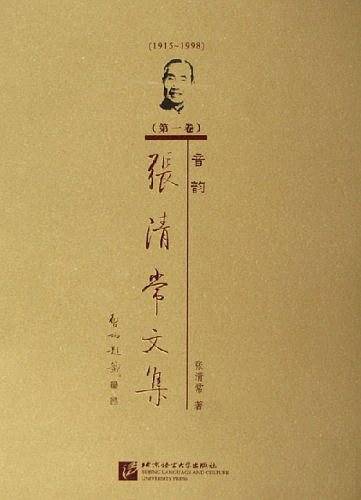 (1915~1998)
(第一卷)
音韵
張清常文集
启功題籤
张清常 著
北京语言大学出版社
BEIJING LANGUAGE AND CULTURE
UNIVERSITY PRESS